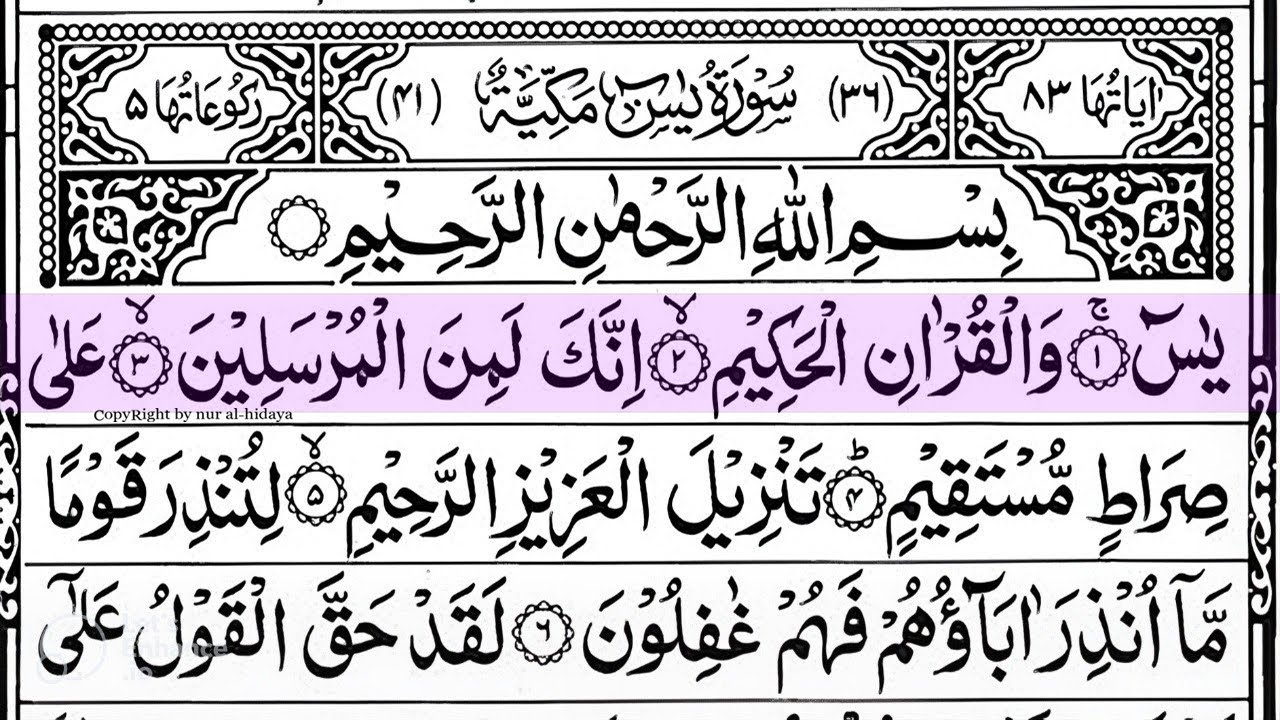 اٰيَاتُهَا ٨٣ (٣٦) سُوْرَةُ يٰسٓ مَكِّيَّةٌ (٤١) رُكُوْعَاتُهَا ٥
بِسْمِ اللّٰهِ الرَّحْمٰنِ الرَّحِيْمِ
يٰسٓ ۚ﴿١﴾ وَالْقُرْاٰنِ الْحَكِيْمِ ۙ﴿٢﴾ اِنَّكَ لَمِنَ الْمُرْسَلِيْنَ ۙ﴿٣﴾ عَلٰى
CopyRight by nur al-hidaya
صِرَاطٍ مُّسْتَقِيْمٍ ؕ﴿۴﴾ تَنْزِيْلَ الْعَزِيْزِ الرَّحِيْمِ ۙ﴿۵﴾ لِتُنْذِرَ قَوْمًا
مَّاۤ اُنْذِرَ اٰبَآؤُهُمْ فَهُمْ غٰفِلُوْنَ ﴿۶﴾ لَقَدْ حَقَّ الْقَوْلُ عَلٰٓى
Let's
Enhance
.io